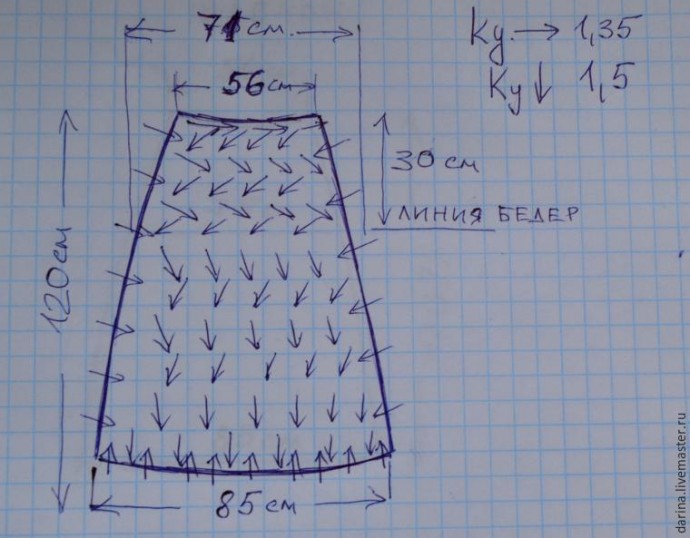 71 см.
Ку → 1,35
56см
Ку ↓ 1,5
30 см
ЛИНИЯ БЕДЕР
120см
85см
darina.livemaster.ru